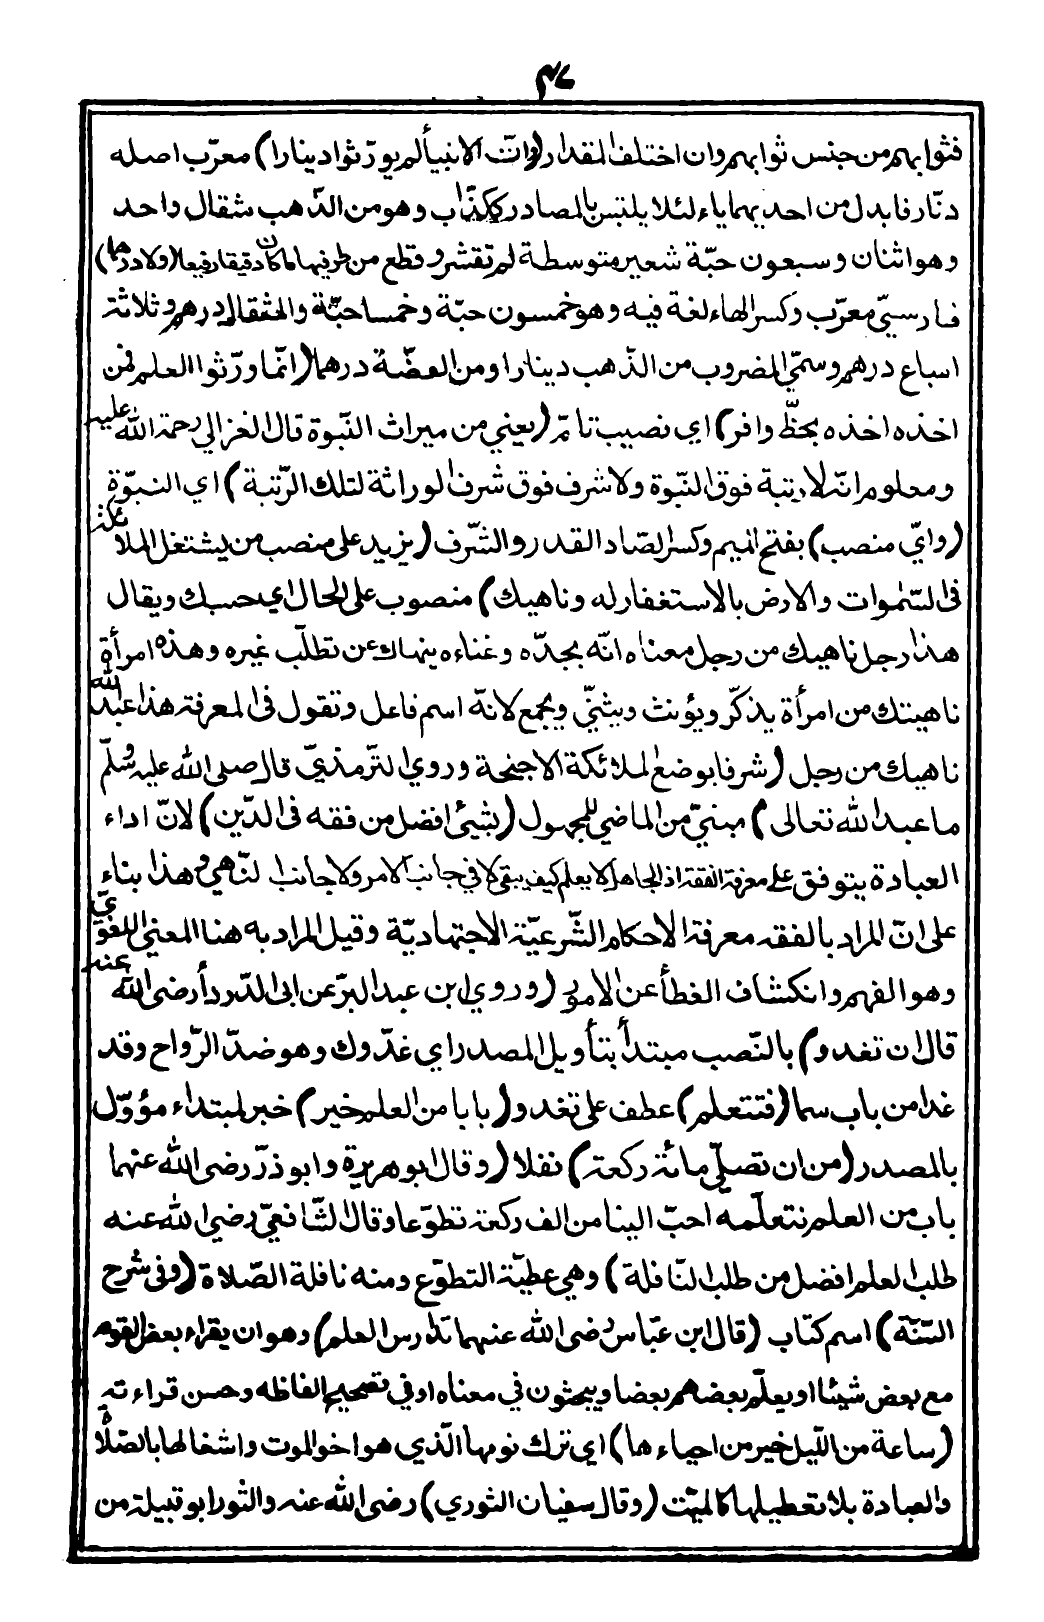 ٣٤
فثوابهم من جنس ثوابهم وان اختلف المقدار (وانّ الانبيأ لم يورّثوا دينارا) معرّب اصله
دنّار فابدل من احد يهما ياء لئلا يلتبس بالمصادر ككذّاب وهو من الذّهب شقال واحد
وهو اثنان وسبعون حبّة شعير متوسطة لم تقشر وقطع من طرفيها ما كان دقيقا رفيعا (ولا درهما)
فارسيّ معرّب وكسر الهاء لغة فيه وهو خمسون حبّة وخمسا حبّة والمثقال درهم وثلاثة
اسباع درهم وسمّي المضروب من الذّهب دينارا ومن الفضّة درهما (انّما ورّثوا العلم فمن
اخذه اخذه بحظّ وافر) اي نصيب تامّ (يعني من ميراث النّبوة قال الغزالي رحمة الله عليه
ومعلوم انّه لا رتبة فوق النّبوة ولا شرف فوق شرف الوراثة لتلك الرّتبة) اي النبوّة
(وايّ منصب) بفتح الميم وكسر الصّاد القدر والشّرف (يزيد على منصب من يشتغل الملائكة
فى السّموات والارض بالاستغفار له وناهيك) منصوب على الحال اي حسبك ويقال
هذا رجل ناهيك من رجل معناه انّه بجدّه وغناءه ينهاك عن تطلّب غيره وهذه امرأة
ناهيتك من امرأة يذكّر ويؤنث ويثنّي ويجمع لانّه اسم فاعل وتقول فى المعرفة هذا عبد الله
ناهيك من رجل (شرفا بوضع الملائكة الاجنحة وروي الترمذيّ قال صلى الله عليه وسلّم
ما عبد الله تعالى) مبنيّ من الماضي للمجهول (بشيئ افضل من فقه فى الدّين) لانّ اداء
العبادة يتوقف على معرفة الفقه اذ الجاهل لا يعلم كيف يبقى لا في جانب الامر ولا جانب النّهي وهذا بناء
على انّ المراد بالفقه معرفة الاحكام الشّرعيّة الاجتهاديّة وقيل المراد به هنا المعنى اللغويّ
وهو الفهم وانكشاف الغطأ عن الامور (وروي ابن عبد البرّ عن ابى الدّردأ رضى الله عنه
قال ان تغدو) بالنّصب مبتدأ بتأويل المصدر اي غدّوك وهو ضدّ الرّواح وقد
غدا من باب سما (فتتعلم) عطف على تغدو (بابا من العلم خير) خبر لمبتداء مؤوّل
بالمصدر (من ان تصلّي مائة ركعة) نفلا (وقال ابو هريرة وابو ذرّ رضى الله عنهما
باب من العلم نتعلّمه احبّ الينا من الف ركعة تطوّعا وقال الشّافعيّ رضى الله عنه
طلب العلم افضل من طلب النّافلة) وهي عطيّة التطوّع ومنه نافلة الصّلاة (وفى شرح
السّنّة) اسم كتّاب (قال ابن عبّاس رضى الله عنهما تدارس العلم) وهو ان يقراء بعض القوم
مع بعض شيئا او يعلّم بعضهم بعضا ويبحثون في معناه او في تصحيح الفاظه وحسن قراءته
(ساعة من اللّيل خير من احياءها) اي ترك نومها الّذي هو اخو الموت واشغالها بالصّلاة
والعبادة بلا تعطيلها كالميّت (وقال سفيان الثوري) رضى الله عنه والثور ابو قبيلة من